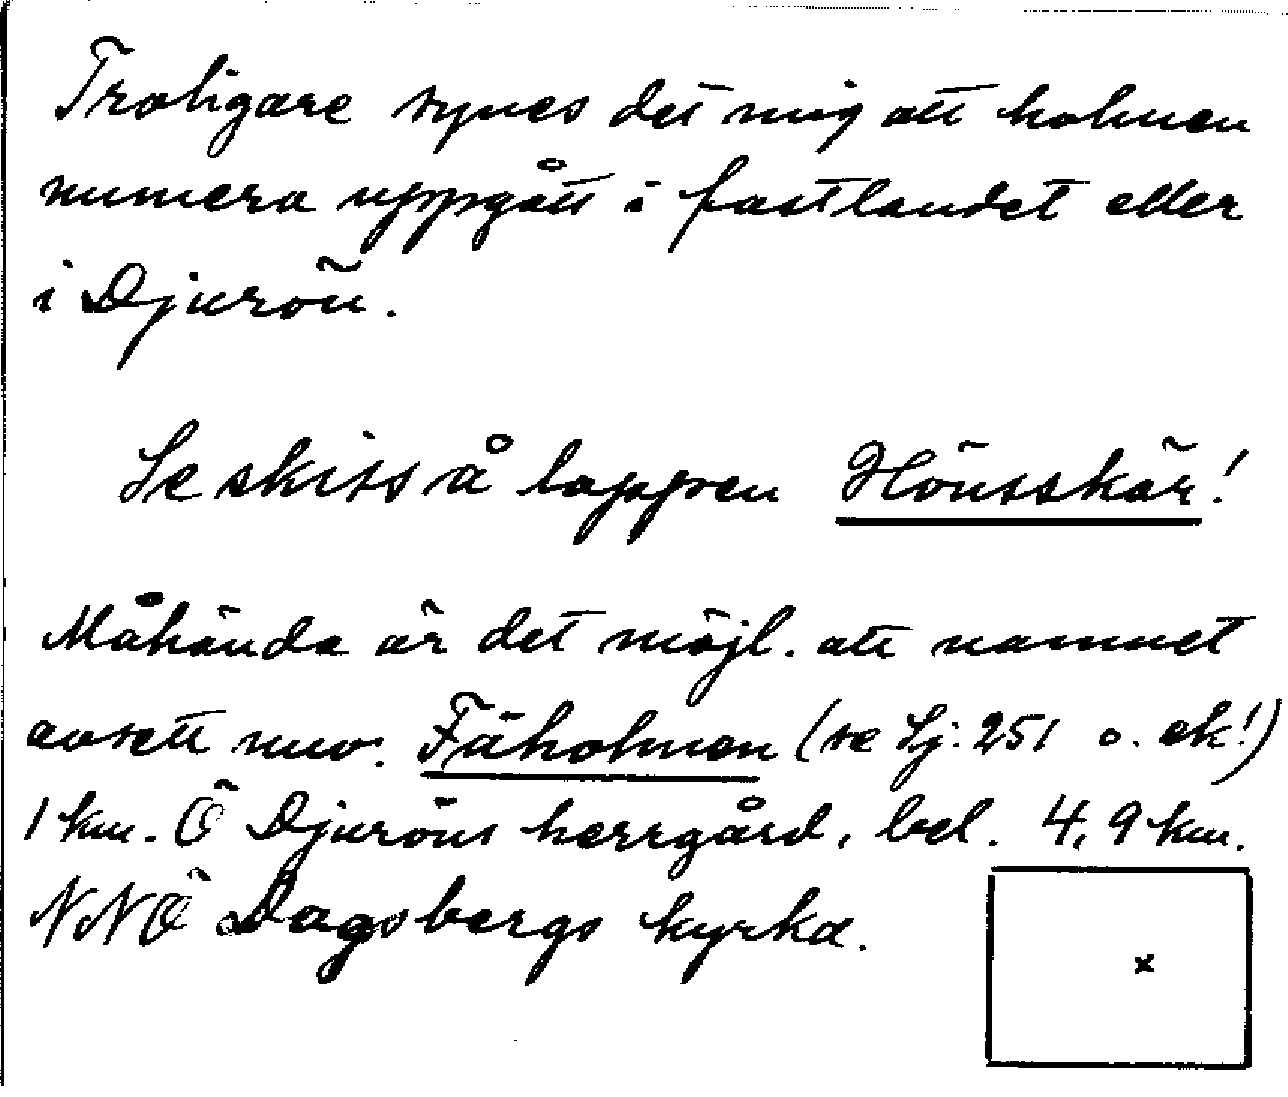 Troligare synes det mig att holmen
numera uppgått i fastlandet eller
i Djurön.
Se skiss å lappen Hönsskär!
Måhända är det möjl. att namnet
avsett nuv. Fäholmen (se Sj. 251 o. ek!)
1 km. Ö Djuröns herrgård, bel. 4,9 km.
NNÖ Dagsbergs kyrka.
x